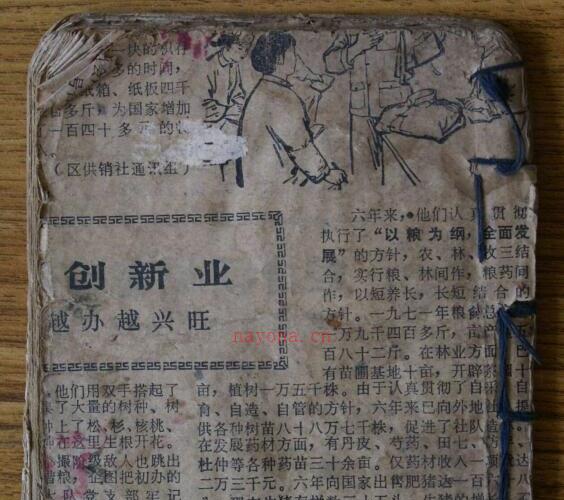 一块的积存
多的时间，
纸箱、纸板四千
百多斤，为国家增加
一百四十多
（区供销社通讯组）
创新业
越办越兴旺
nayona.cn
他们用双手搭起了
了大量的树种、树
上了松、杉、核桃、
在这里生根开花。
撮阶级敌人也跳出
粮，企图把初办的
大队党支部牢记
六年来，他们认真贯彻
执行了“以粮为纲，全面发
展”的方针，农、林、牧三结
合，实行粮、林间作，粮药间
作，以短养长，长短结合的
方针。一九七一年粮食总
万九千四百多斤，亩产五
百八十二斤。在林业方面，已
有苗圃基地十亩，开辟 十
亩，植树一万五千株。由于认真贯彻了自采、自
育、自造、自管的方针，六年来已向外地 提
供各种树苗八十八万七千株，促进了社队造
在发展药材方面，有丹皮、芍药、田七、
杜仲等各种药苗三十余亩。仅药材收入一项 达
二万三千元。六年向国家出售肥猪达一百六十八